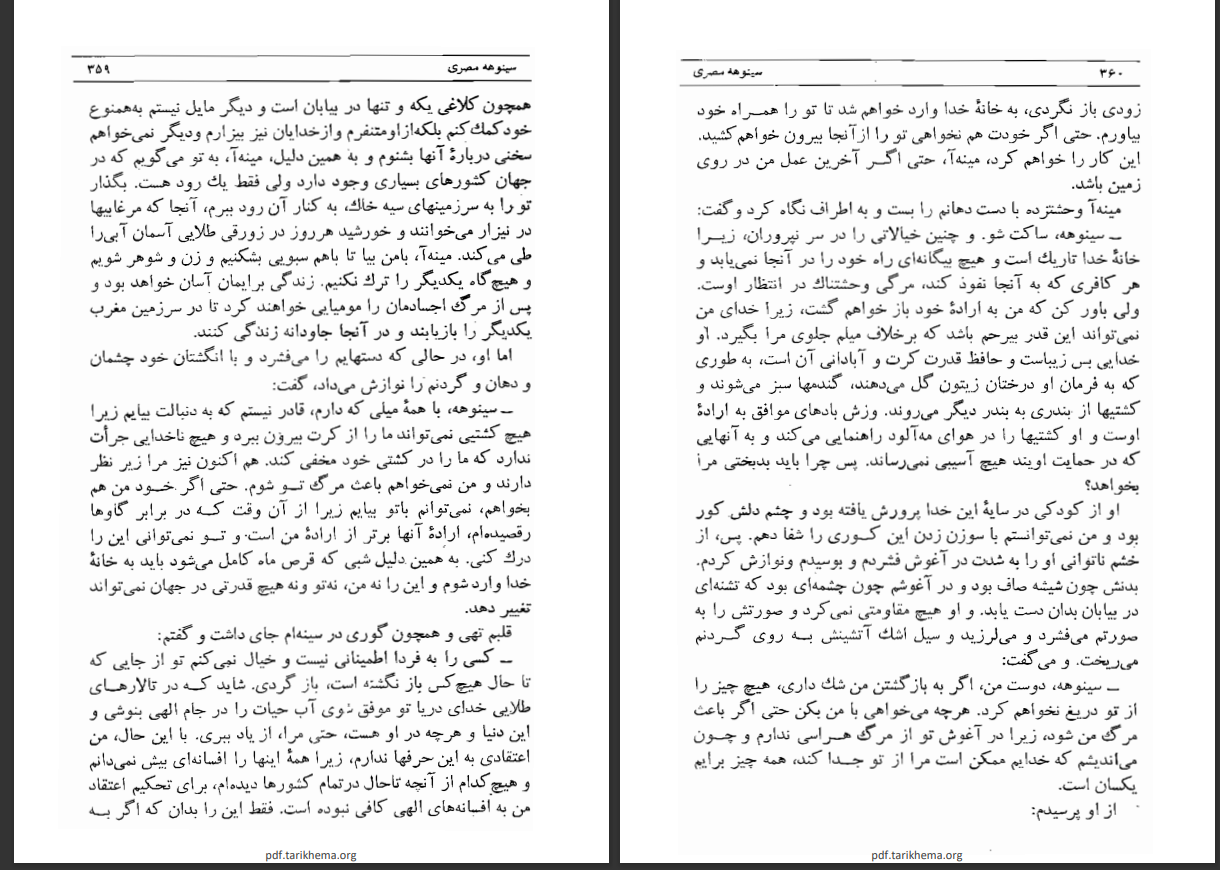 سینوهه مصری
۳۵۹
همچون کلاغی یکه و تنها در بیابان است و دیگر مایل نیستم به‌همنوع
خود کمك کنم بلکه از او متنفرم و از خدایان نیز بیزارم و دیگر نمی‌خواهم
سخنی دربارهٔ آنها بشنوم و به همین دلیل، مینه‌آ، به تو می‌گویم که در
جهان کشورهای بسیاری وجود دارد ولی فقط یك رود هست. بگذار
تو را به سرزمینهای سیه خاك، به کنار آن رود ببرم، آنجا که مرغابیها
در نیزار می‌خوانند و خورشید هرروز در زورقی طلایی آسمان آبی‌را
طی می‌کند. مینه‌آ، بامن بیا تا باهم سبویی بشکنیم و زن و شوهر شویم
و هیچ‌گاه یکدیگر را ترك نکنیم. زندگی برایمان آسان خواهد بود و
پس از مرگ اجسادمان را مومیایی خواهند کرد تا در سرزمین مغرب
یکدیگر را بازیابند و در آنجا جاودانه زندگی کنند.
اما او، در حالی که دستهایم را می‌فشرد و با انگشتان خود چشمان
و دهان و گردنم را نوازش می‌داد، گفت:
ــ سینوهه، با همهٔ میلی که دارم، قادر نیستم که به دنبالت بیایم زیرا
هیچ کشتیی نمی‌تواند ما را از کرت بیرون ببرد و هیچ ناخدایی جرأت
ندارد که ما را در کشتی خود مخفی کند. هم اکنون نیز مرا زیر نظر
دارند و من نمی‌خواهم باعث مرگ تــو شوم. حتی اگر خــود من هم
بخواهم، نمی‌توانم باتو بیایم زیرا از آن وقت کــه در برابر گاوها
رقصیده‌ام، ارادهٔ آنها برتر از ارادهٔ من است و تــو نمی‌توانی این را
درك کنی. به همین دلیل شبی که قرص ماه کامل می‌شود باید به خانهٔ
خدا وارد شوم و این را نه من، نه‌تو ونه هیچ قدرتی در جهان نمی‌تواند
تغییر دهد.
قلبم تهی و همچون گوری در سینه‌ام جای داشت و گفتم:
ــ کسی را به فردا اطمینانی نیست و خیال نمی‌کنم تو از جایی که
تا حال هیچ‌کس باز نگشته است، باز گردی. شاید کــه در تالارهــای
طلایی خدای دریا تو موفق شوی آب حیات را در جام الهی بنوشی و
این دنیا و هرچه در او هست، حتی مرا، از یاد ببری. با این حال، من
اعتقادی به این حرفها ندارم، زیرا همهٔ اینها را افسانه‌ای بیش نمی‌دانم
و هیچ‌کدام از آنچه تاحال درتمام کشورها دیده‌ام، برای تحکیم اعتقاد
من به افسانه‌های الهی کافی نبوده است. فقط این را بدان که اگر بــه
pdf.tarikhema.org
سینوهه مصری
۳۶۰
زودی باز نگردی، به خانهٔ خدا وارد خواهم شد تا تو را همــراه خود
بیاورم. حتی اگر خودت هم نخواهی تو را از آنجا بیرون خواهم کشید.
این کار را خواهم کرد، مینه‌آ، حتی اگــر آخرین عمل من در روی
زمین باشد.
مینه‌آ وحشتزده با دست دهانم را بست و به اطراف نگاه کرد وگفت:
ــ سینوهه، ساکت شو. و چنین خیالاتی را در سر نپروران، زیــرا
خانهٔ خدا تاریك است و هیچ بیگانه‌ای راه خود را در آنجا نمی‌یابد و
هر کافری که به آنجا نفوذ کند، مرگی وحشتناك در انتظار اوست.
ولی باور کن که من به ارادهٔ خود باز خواهم گشت، زیرا خدای من
نمی‌تواند این قدر بیرحم باشد که برخلاف میلم جلوی مرا بگیرد. او
خدایی بس زیباست و حافظ قدرت کرت و آبادانی آن است، به طوری
که به فرمان او درختان زیتون گل می‌دهند، گندمها سبز می‌شوند و
کشتیها از بندری به بندر دیگر می‌روند. وزش بادهای موافق به ارادهٔ
اوست و او کشتیها را در هوای مه‌آلود راهنمایی می‌کند و به آنهایی
که در حمایت اویند هیچ آسیبی نمی‌رساند. پس چرا باید بدبختی مرا
بخواهد؟
او از کودکی در سایهٔ این خدا پرورش یافته بود و چشم دلش کور
بود و من نمی‌توانستم با سوزن زدن این کــوری را شفا دهم. پس، از
خشم ناتوانی او را به شدت در آغوش فشردم و بوسیدم ونوازش کردم.
بدنش چون شیشه صاف بود و در آغوشم چون چشمه‌ای بود که تشنه‌ای
در بیابان بدان دست یابد. و او هیچ مقاومتی نمی‌کرد و صورتش را به
صورتم می‌فشرد و می‌لرزید و سیل اشك آتشینش بــه روی گــردنم
می‌ریخت. و می‌گفت:
ــ سینوهه، دوست من، اگر به بازگشتن من شك داری، هیچ چیز را
از تو دریغ نخواهم کرد. هرچه می‌خواهی با من بکن حتی اگر باعث
مرگ من شود، زیرا در آغوش تو از مرگ هــراسی ندارم و چــون
می‌اندیشم که خدایم ممکن است مرا از تو جــدا کند، همه چیز برایم
یکسان است.
از او پرسیدم:
pdf.tarikhema.org